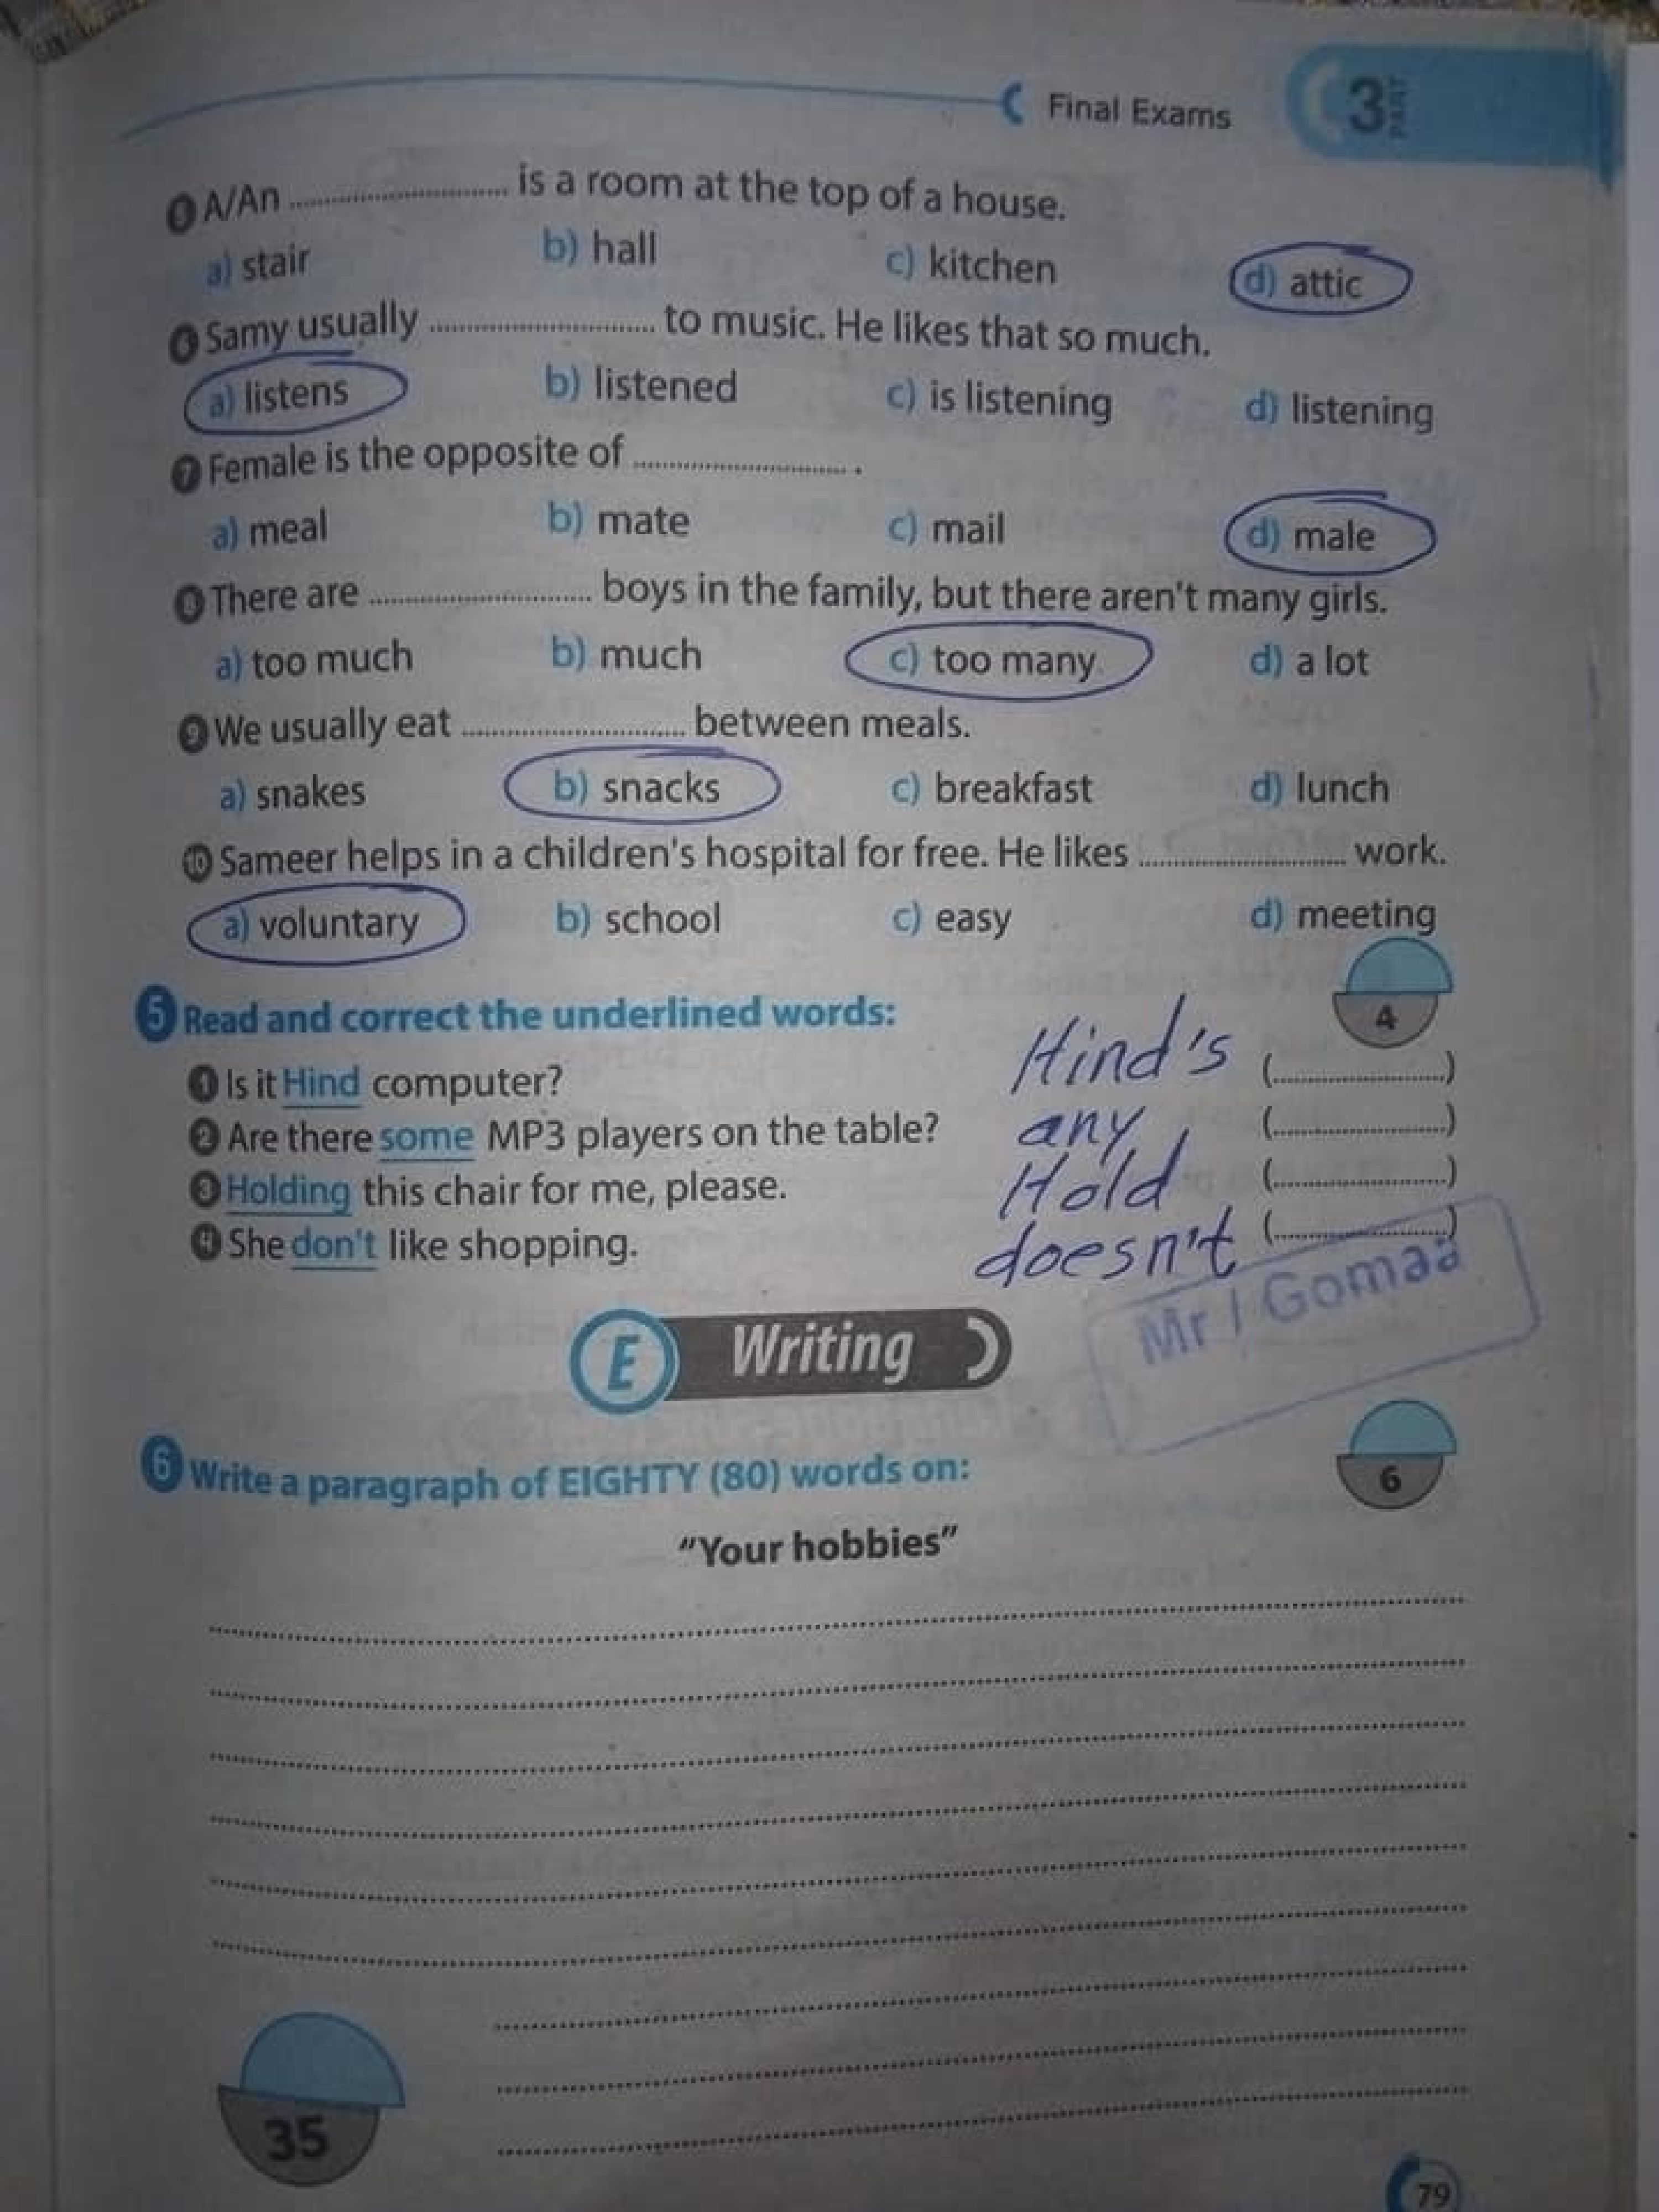 Final Exams
3 PART
5 A/An .......................... is a room at the top of a house.
a) stair b) hall c) kitchen d) attic
6 Samy usually .......................... to music. He likes that so much.
a) listens b) listened c) is listening d) listening
7 Female is the opposite of .......................... .
a) meal b) mate c) mail d) male
8 There are .......................... boys in the family, but there aren't many girls.
a) too much b) much c) too many d) a lot
9 We usually eat .......................... between meals.
a) snakes b) snacks c) breakfast d) lunch
10 Sameer helps in a children's hospital for free. He likes .......................... work.
a) voluntary b) school c) easy d) meeting
5 Read and correct the underlined words:
4
1 Is it Hind computer? Hind's (....................)
2 Are there some MP3 players on the table? any (....................)
3 Holding this chair for me, please. Hold (....................)
4 She don't like shopping. doesn't (....................)
Mr / Gomaa
E Writing
6 Write a paragraph of EIGHTY (80) words on:
6
"Your hobbies"
35
79